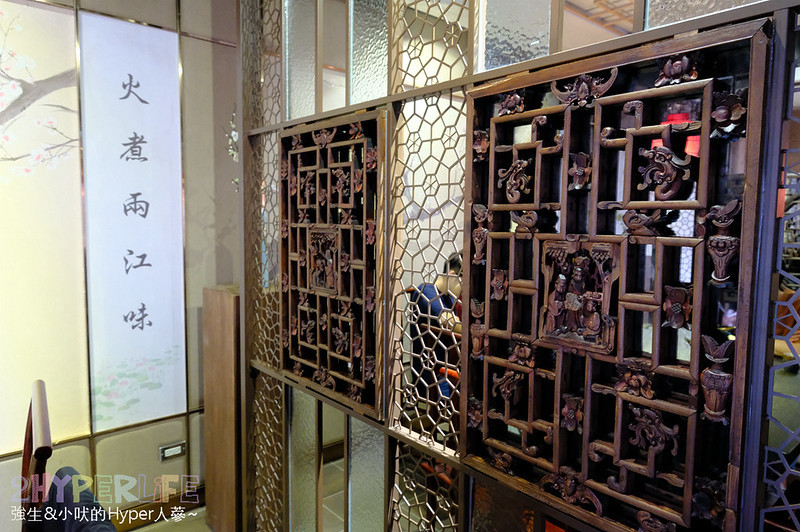 火煮兩江味
2HYPERLIFE
強生&小吠的Hyper人蔘~